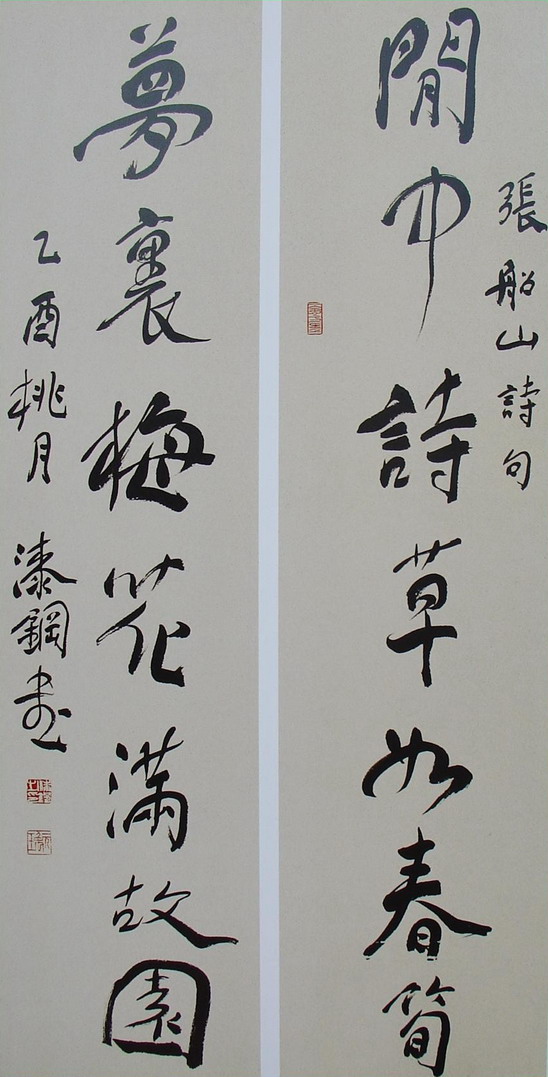 張船山詩句
閒中詩草如春筍
夢裏梅花滿故園
乙酉桃月
漆鋼書